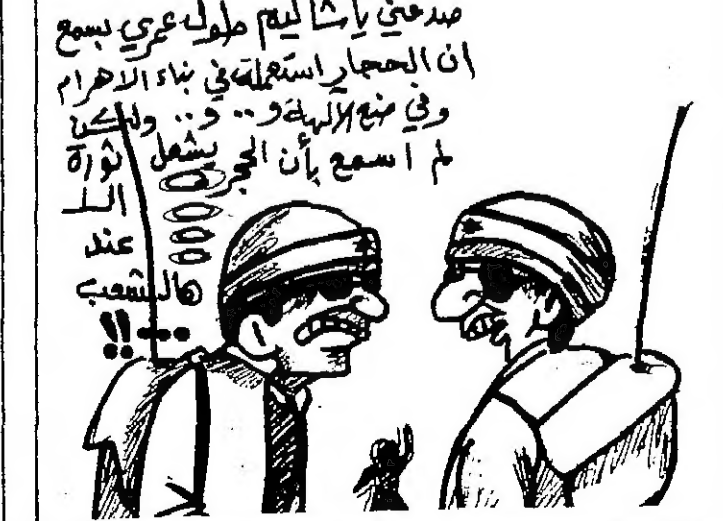 صدقني يا شاليم طول عمري بسمع
ان الحجار استعملة في بناء الاهرام
وفي صنع الالهة و.. و.. ولكن
لم اسمع بأن الحجر يشعل ثورة
الا
عند
هالشعب
...!!